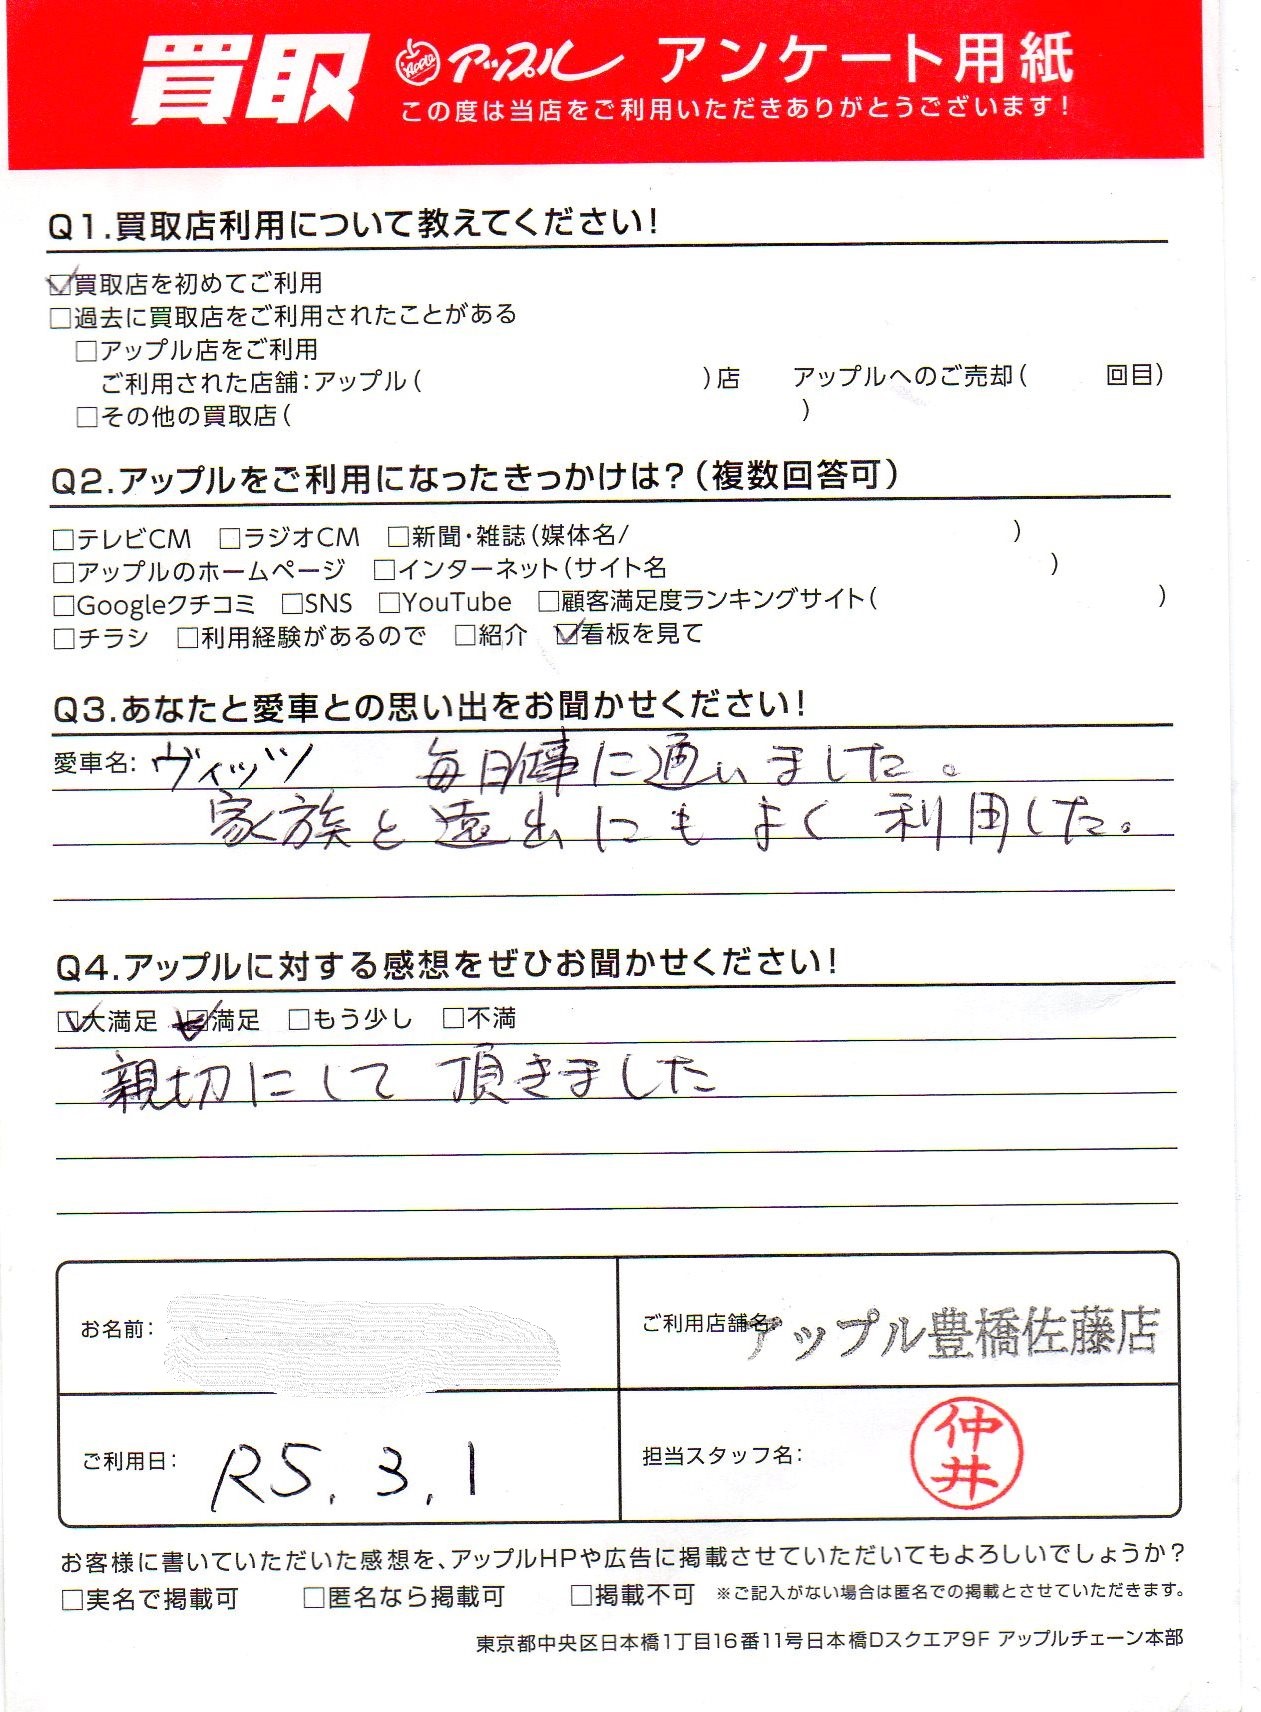 買取 Apple アップル アンケート用紙
この度は当店をご利用いただきありがとうございます!
Q1.買取店利用について教えてください!
☑買取店を初めてご利用
□過去に買取店をご利用されたことがある
□アップル店をご利用
ご利用された店舗:アップル( )店 アップルへのご売却( 回目)
□その他の買取店( )
Q2.アップルをご利用になったきっかけは?(複数回答可)
□テレビCM □ラジオCM □新聞・雑誌(媒体名/ )
□アップルのホームページ □インターネット(サイト名 )
□Googleクチコミ □SNS □YouTube □顧客満足度ランキングサイト( )
□チラシ □利用経験があるので □紹介 ☑看板を見て
Q3.あなたと愛車との思い出をお聞かせください!
愛車名: ヴィッツ 毎日仕事に通いました。
家族と遠出にもよく利用した。
Q4.アップルに対する感想をぜひお聞かせください!
☑大満足 ☑満足 □もう少し □不満
親切にして頂きました
お名前:
ご利用店舗名: アップル豊橋佐藤店
ご利用日: R5.3.1
担当スタッフ名: 仲井
お客様に書いていただいた感想を、アップルHPや広告に掲載させていただいてもよろしいでしょうか?
□実名で掲載可 □匿名なら掲載可 □掲載不可 ※ご記入がない場合は匿名での掲載とさせていただきます。
東京都中央区日本橋1丁目16番11号日本橋Dスクエア9F アップルチェーン本部